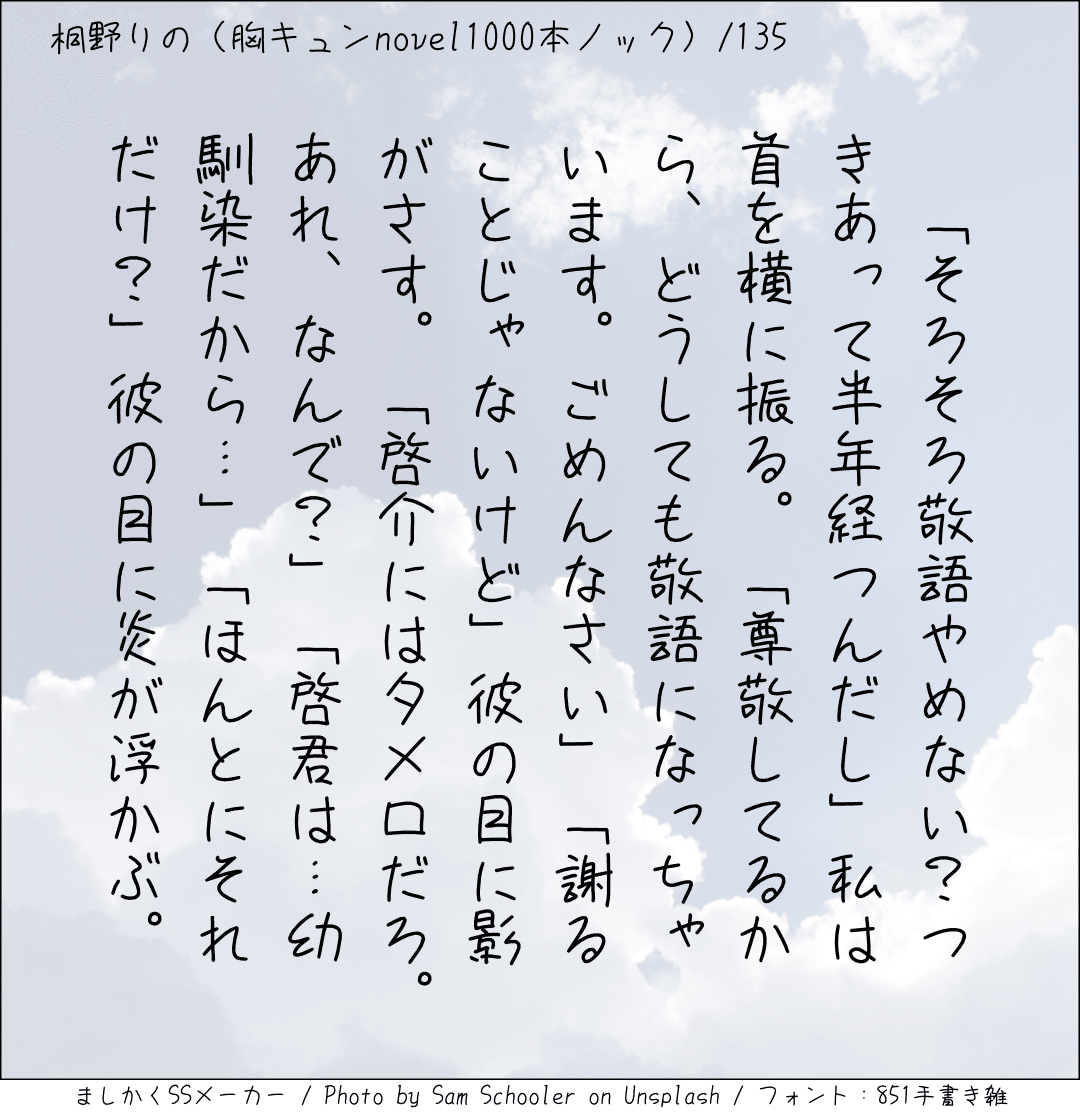 桐野りの（胸キュンnovel1000本ノック）/135
「そろそろ敬語やめない？つ
きあって半年経つんだし」私は
首を横に振る。「尊敬してるか
ら、どうしても敬語になっちゃ
います。ごめんなさい」「謝る
ことじゃないけど」彼の目に影
がさす。「啓介にはタメ口だろ。
あれ、なんで？」「啓君は…幼
馴染だから…」「ほんとにそれ
だけ？」彼の目に炎が浮かぶ。
ましかくSSメーカー / Photo by Sam Schooler on Unsplash / フォント：851手書き雑